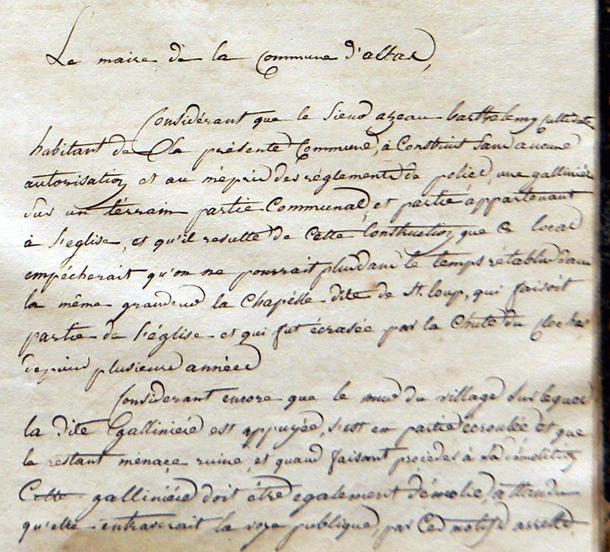 Le maire de la Commune d'altas,
Considérant que le Sieur azeau barthelemy Cultivateur
habitant de la présente Commune, à Construit Sans aucune
autorisation et au mépris des réglements de police, une gallinière
Sur un terrain partie Communal, et partie appartenant
à l'église, et qu'il resulte de Cette Construction que Ce local
empécherait qu'on ne pourrait plus dans le temps rétablir dans
la même grandeur la Chapelle dite de St. loup, qui faisoit
partie de l'église et qui fut écrasée par la Chute du clocher
depuis plusieurs années
Considérant encore que le mur du village Sur lequel
la dite gallinière est appuyée, s'est en partie écroulée et que
le restant ménace ruine, et quand faisant procéder à sa démolition
Cette gallinière doit être également démolie, attendu
qu'elle entraverait la voye publique, par Ces motifs arrette.